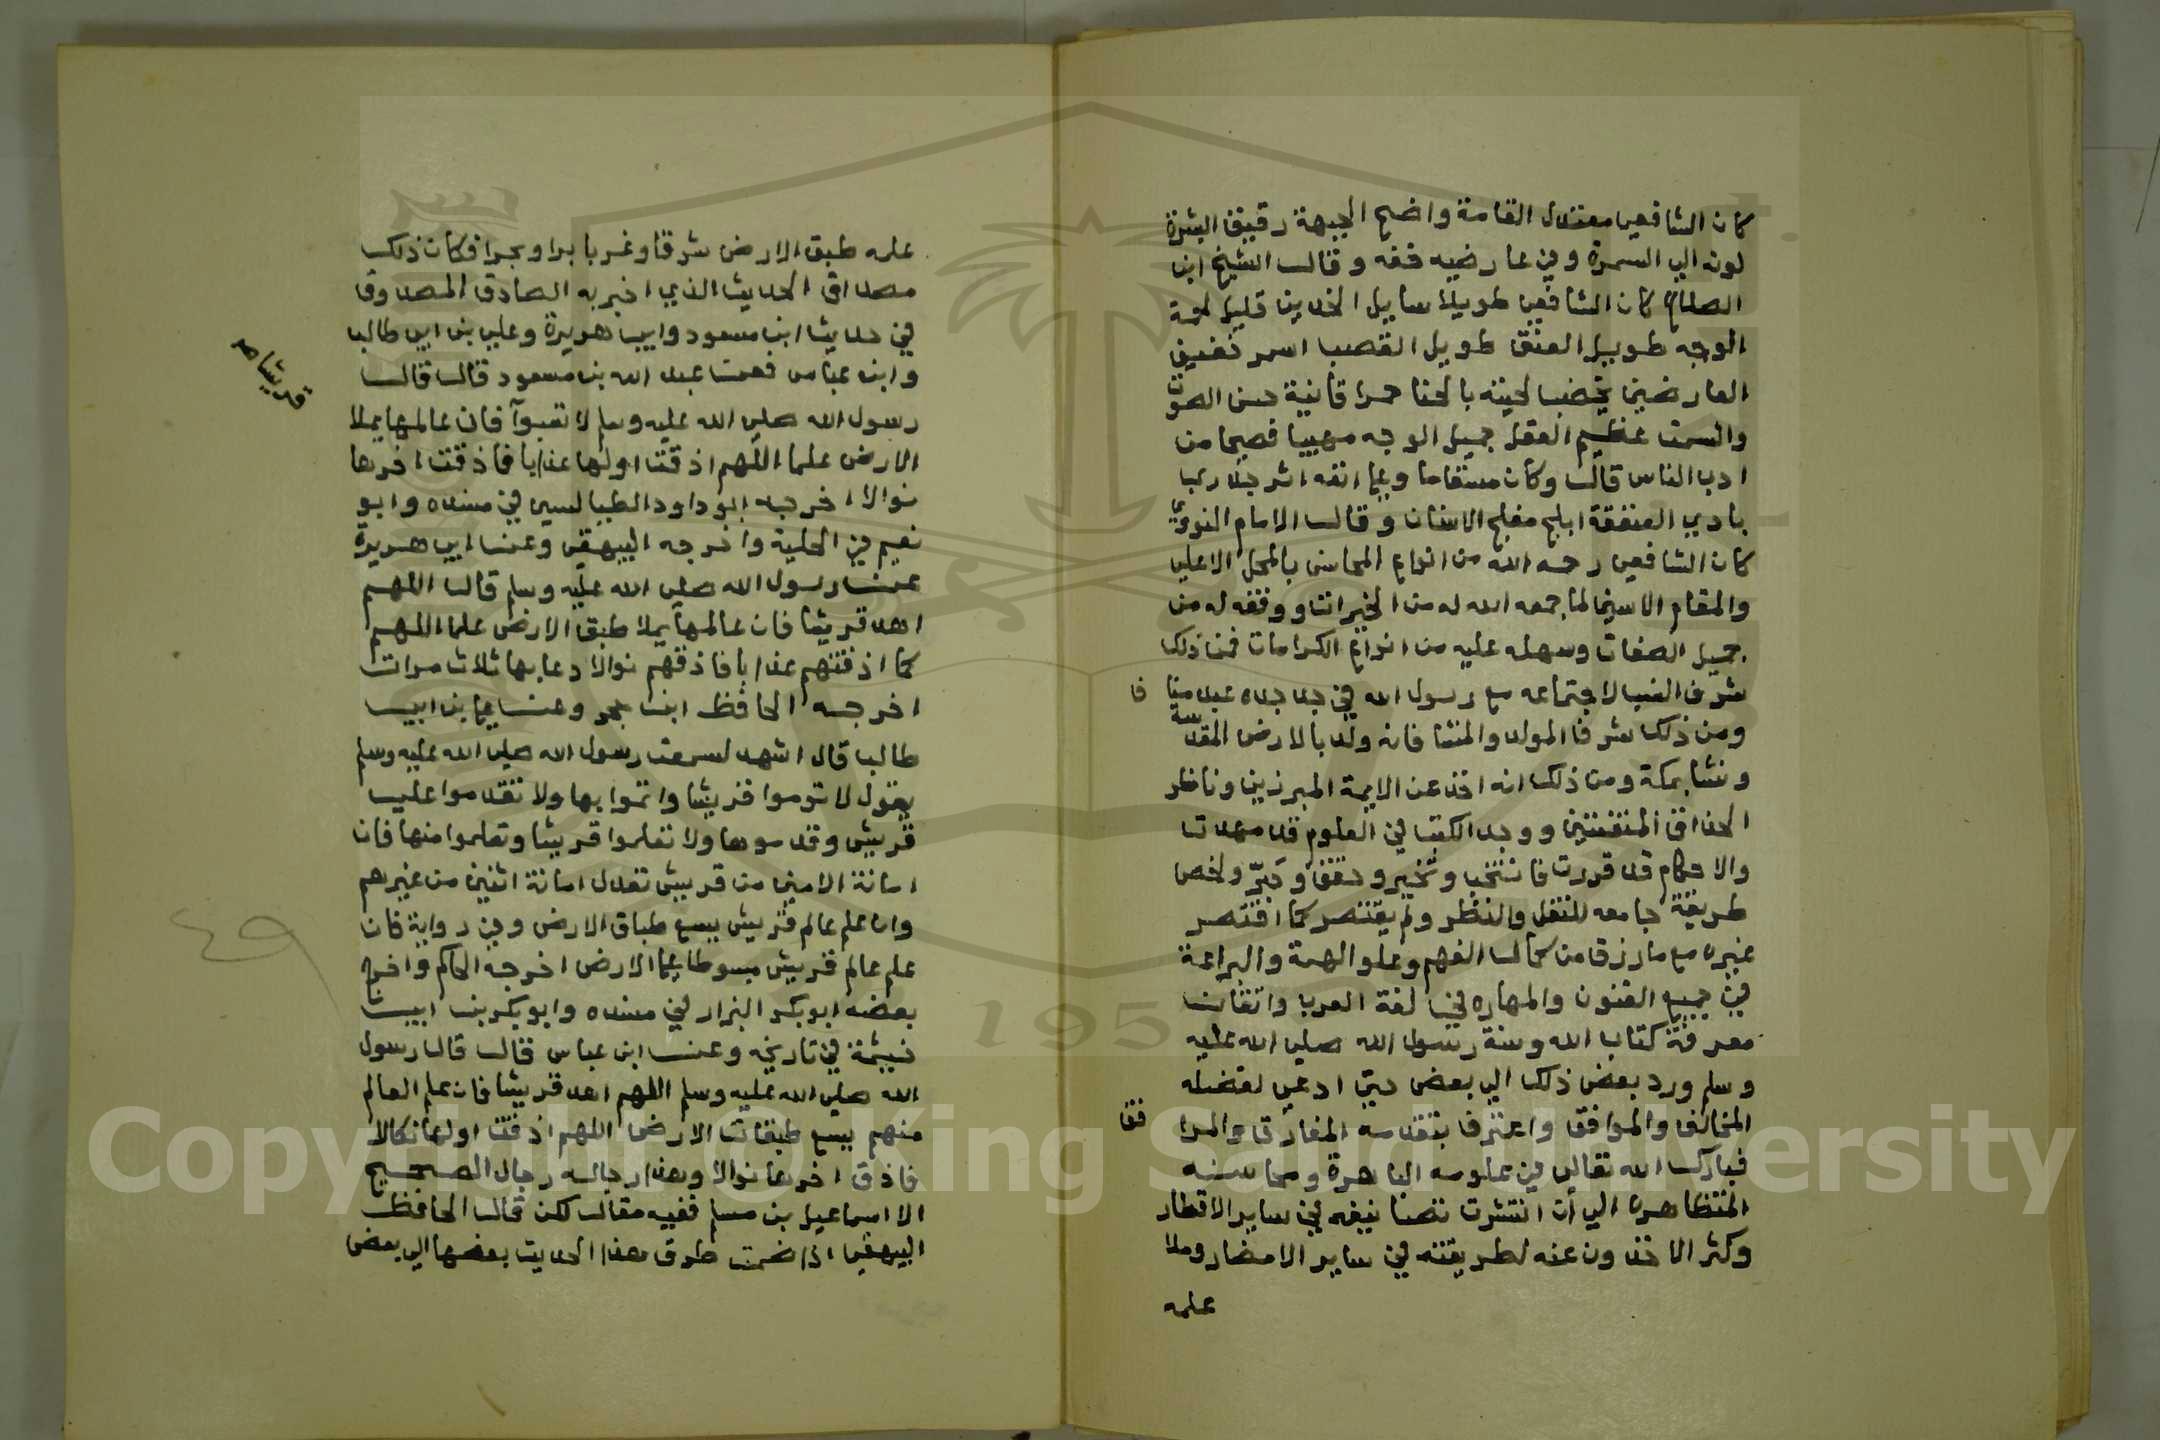 كان الشافعي معتدل القامة واضح الجبهة رقيق البشرة
لونه الي السمرة وفي عارضيه خفه وقال الشيخ ابن
الصلاح كان الشافعي طويلا سايل الخدين قليل لحمة
الوجه طويل العنق طويل القصب اسمر خفيف
العارضين يخضب لحيته بالحنا حمرا قانية حسن الصوت
والسمت عظيم العقل جميل الوجه مهيبا فصيحا من
ادب الناس قال وكان مسقاما وعلي انفه اثر جدري
بادي العنفقة ابلج مفلج الاسنان وقال الامام النووي
كان الشافعي رحمه الله من انواع المحاسن بالمحل الاعلي
والمقام الاسني لما جمعه الله له من الخيرات ووفقه له من
جميل الصفات وسهله عليه من انواع الكرامات فمن ذلك
شرف النسب لاجتماعه مع رسول الله في جد جده عبد منا
فا
ومن ذلك شرف المولد والمنشا فانه ولد بالارض المقدسة
ونشا بمكة ومن ذلك انه اخذ عن الايمة المبرزين وناظر
الحذاق المتقنين ووجد الكتب في العلوم قد مهدت
والاحكام قد قررت فانتخب وتخير وحقق وحرّر ولخص
طريقة جامعه للنقل والنظر ولم يقتصر كما اقتصر
غيره مع ما رزق من كمال الفهم وعلو الهمة والبراعة
في جميع الفنون والمهاره في لغة العرب واتقان
معرفة كتاب الله وسنة رسول الله صلي الله عليه
وسلم ورد بعض ذلك الي بعض حتي ادعي لفضله
المخالف والموافق واعترف بتقدمه المفارق والمرا
فق
فبارك الله تعالي في علومه الباهرة ومحاسنه
المتظاهرة الي أن انتشرت تصانيفه في ساير الاقطار
وكثر الاخذون عنه لطريقته في ساير الامصار وملا
علمه
علمه طبق الارض شرقا وغربا برا وبحرا فكان ذلك
مصداق الحديث الذي اخبر به الصادق المصدوق
في حديث ابن مسعود وابي هريرة وعلي بن ابي طالب
وابن عباس فعن عبد الله بن مسعود قال قال
رسول الله صلي الله عليه وسلم لا تسبوآ فان عالمها يملا
قريشا صـ
الارض علما اللهم اذقت اولها عذابا فاذقت اخرها
نوالا اخرجه ابو داود الطيالسي في مسنده وابو
نعيم في الحلية واخرجه البيهقي وعن ابي هريرة
عن رسول الله صلي الله عليه وسلم قال اللهم
اهد قريشا فان عالمها يملا طبق الارض علما اللهم
كما اذقتهم عذابا فاذقهم نوالا دعا بها ثلاث مرات
اخرجه الحافظ ابن حجر وعن علي بن ابي
طالب قال اشهد لسمعت رسول الله صلي الله عليه وسلم
يقول لا توموا قريشا واتموا بها ولا تقدموا علي
قريش وقدموها ولا تعلموا قريشا وتعلموا منها فان
امانة الامين من قريش تعدل امانة اثنين من غيرهم
وان علم عالم قريش يسع طباق الارض وفي رواية فان
علم عالم قريش مبسوط علي الارض اخرجه الحاكم واخرج
بعضه ابو بكر البزار في مسنده وابو بكر بن ابي
خيثمة في تاريخه وعن ابن عباس قال قال رسول
الله صلي الله عليه وسلم اللهم اهد قريشا فان علم العالم
منهم يسع طبقات الارض اللهم اذقت اولها نكالا
فاذق اخرها نوالا وهذا رجاله رجال الصحيح
الا اسماعيل بن مسلم ففيه مقال لكن قال الحافظ
البيهقي اذا ضمت طرق هذا الحديث بعضها الي بعض
٤٩
1957
Copyright © King Saud University